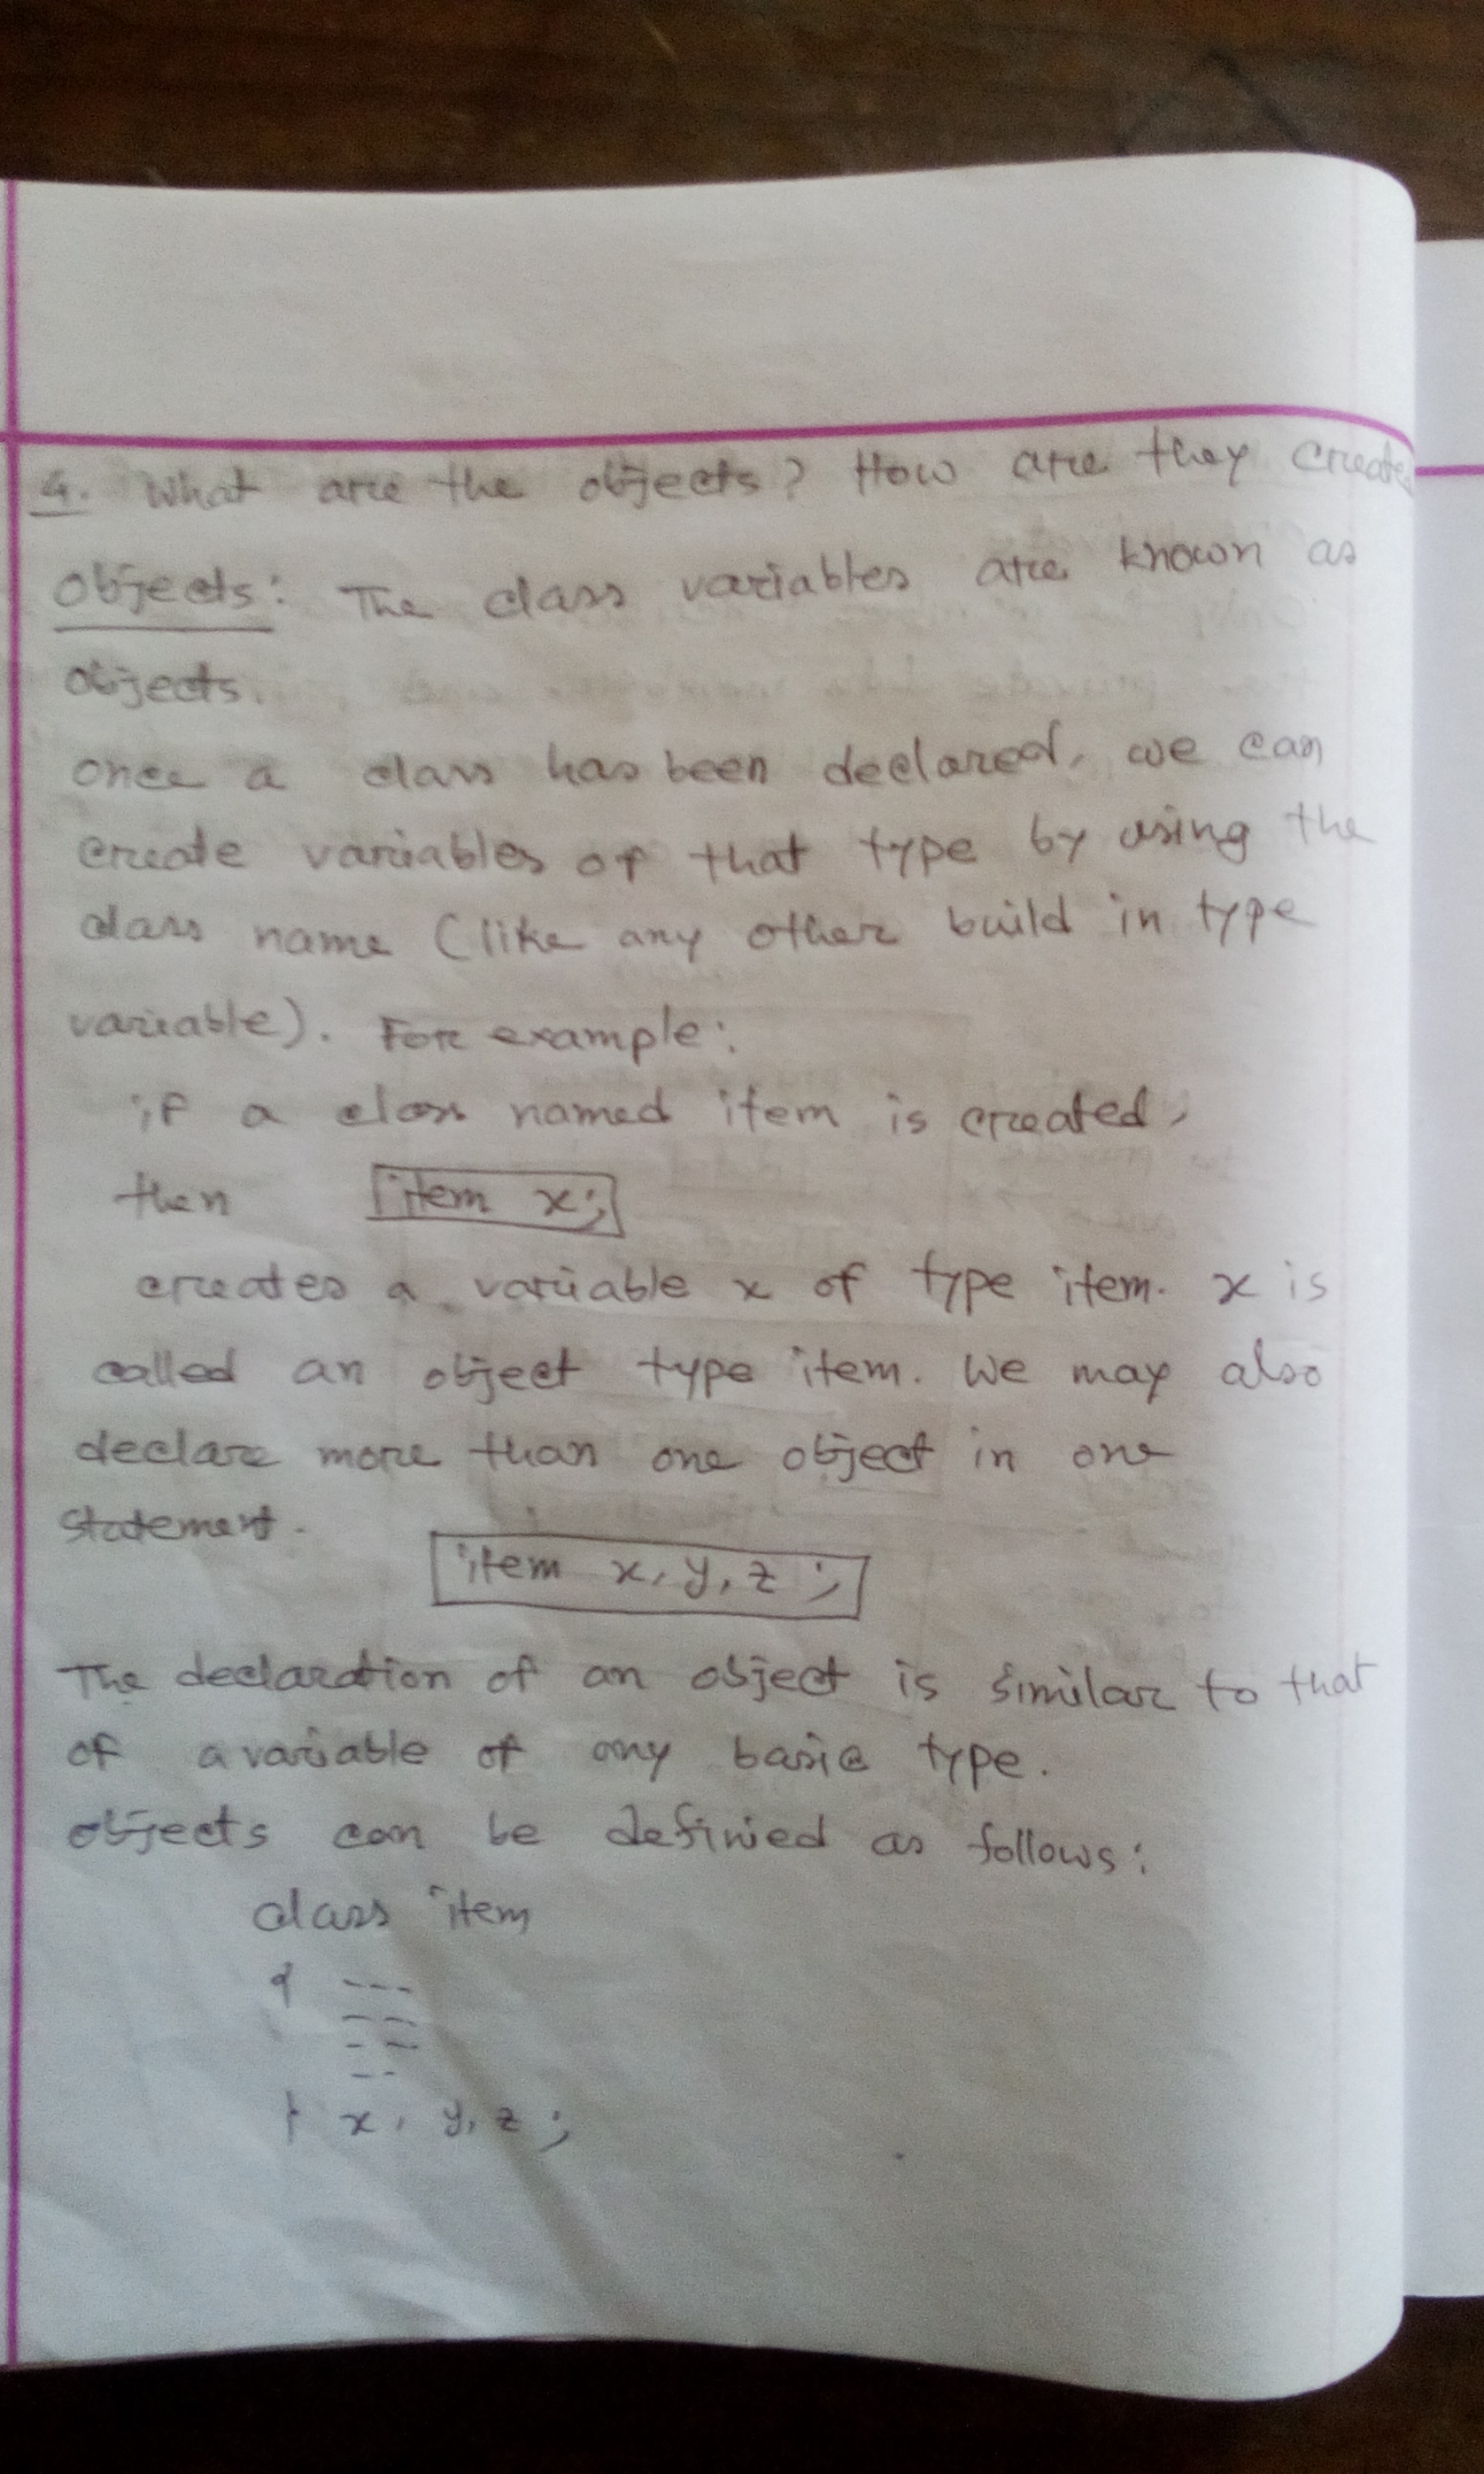 4. What are the objects? How are they create
Objects: The class variables are known as
objects.
once a class has been declared, we can
create variables of that type by using the
class name (like any other build in type
variable). For example:
if a class named item is created,
then item x;
creates a variable x of type item. x is
called an object type item. We may also
declare more than one object in one
statement.
item x, y, z ;
The declaration of an object is similar to that
of a variable of any basic type.
objects can be defined as follows:
class item
{ ---
-- --
- --
--
} x, y, z ;